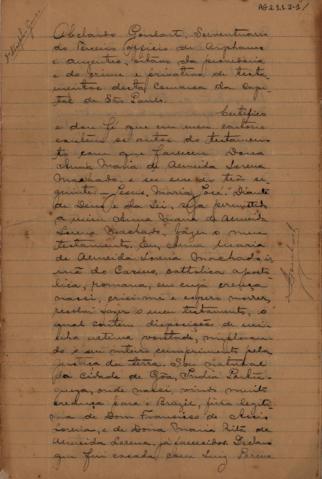 AG 2.1.1.2-1/
Abelardo Goulart, Serventuario
do Terceiro officio de Orphams
e ausentes, da provedoria
e do crime e privativo de testa-
mentos desta Comarca da Capi-
tal de São Paulo.
Certifico
e dou fé que em meu cartorio
constam os autos do testamento
com que falleceu Dona
Anna Maria de Almeida Lorena
Machado, e seu é o se-
guinte: - Jesus, Maria, José. Diante
de Deus e da Lei, seja permittido
a mim Anna Maria de Almeida
Lorena Machado, fazer o meu
testamento. Eu, Anna Maria
de Almeida Lorena Machado,
catholica aposto-
lica, romana, em cuja crença
nasci, cresci e espero morrer,
resolvi fazer o meu testamento, o
qual contem disposição de mi-
nha ultima vontade, imploran-
do o seu inteiro cumprimento pela
justiça da terra. Sou natural
da cidade de Gôa, India Portu-
gueza, onde nasci vindo muito
creança para o Brazil, filha legiti-
ma de Dom Francisco de Assis
Lorena, e de Dona Maria Rita de
Almeida Lorena, já fallecidos. Declaro
que fui casada com Luiz